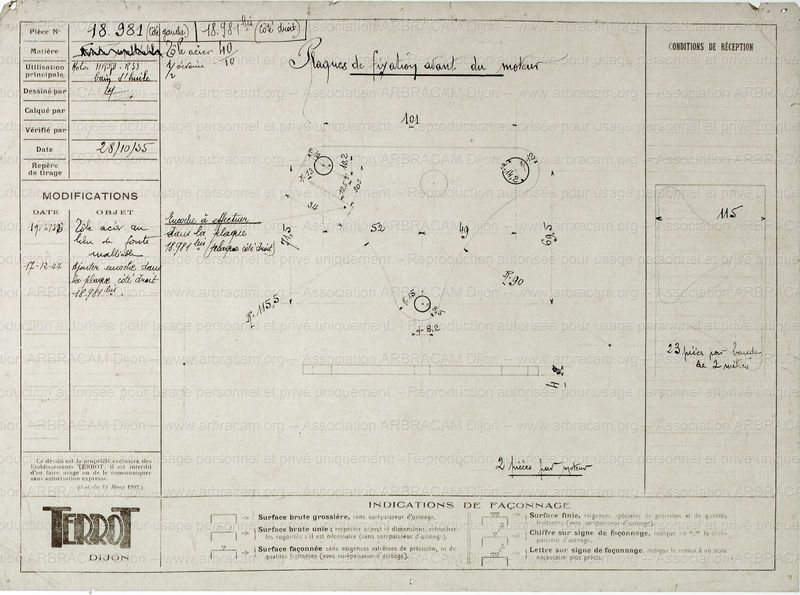 Pièce N° 18.981 (côté gauche) 18.981 bis (côté droit)
Matière Tôle acier 40/10
Utilisation principale
bain d'huile
Dessiné par
Calqué par
Vérifié par
Date 28/10/35
Repère de tirage
Plaques de fixation avant du moteur
CONDITIONS DE RÉCEPTION
MODIFICATIONS
DATE OBJET
Tôle acier au
lieu de fonte
malléable
17-12-44 Ajouter encoche dans
la plaque côté droit
18.981 bis
Encoche à effectuer
dans la plaque
18.981 bis (plaque côté droit)
101
34
71,5
52
49
69,5
R=90
R=115,5
8,2
115
23 pièces par bande
de 2 mètres
2 pièces par moteur
Ce dessin est la propriété exclusive des
Etablissements TERROT. Il est interdit
d'en faire usage ou de le communiquer
sans autorisation expresse.
(Loi du 11 Mars 1902.)
TERROT
DIJON
INDICATIONS DE FAÇONNAGE
Surface brute grossière, sans surépaisseur d'usinage.
Surface brute unie; respecter aspect et dimensions, retoucher
les rugosités s'il est nécessaire (sans surépaisseur d'usinage).
Surface façonnée sans exigences extrêmes de précision, ni de
qualités frottantes (avec surépaisseur d'usinage).
Surface finie, exigences spéciales de précision et de qualités
frottantes (avec surépaisseur d'usinage).
Chiffre sur signe de façonnage, indique en m/m la surépaisseur d'usinage.
Lettre sur signe de façonnage, indique le renvoi à un nota
nécessaire plus précis.
Reproduction autorisée pour usage personnel et privé uniquement. - Reproduction autorisée pour usage personnel et privé uniquement.
www.arbracam.org -- Association ARBRACAM Dijon -- www.arbracam.org -- Association ARBRACAM Dijon